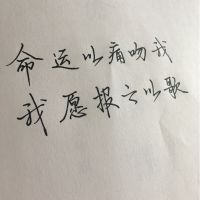 命运以痛吻我
我愿报之以歌